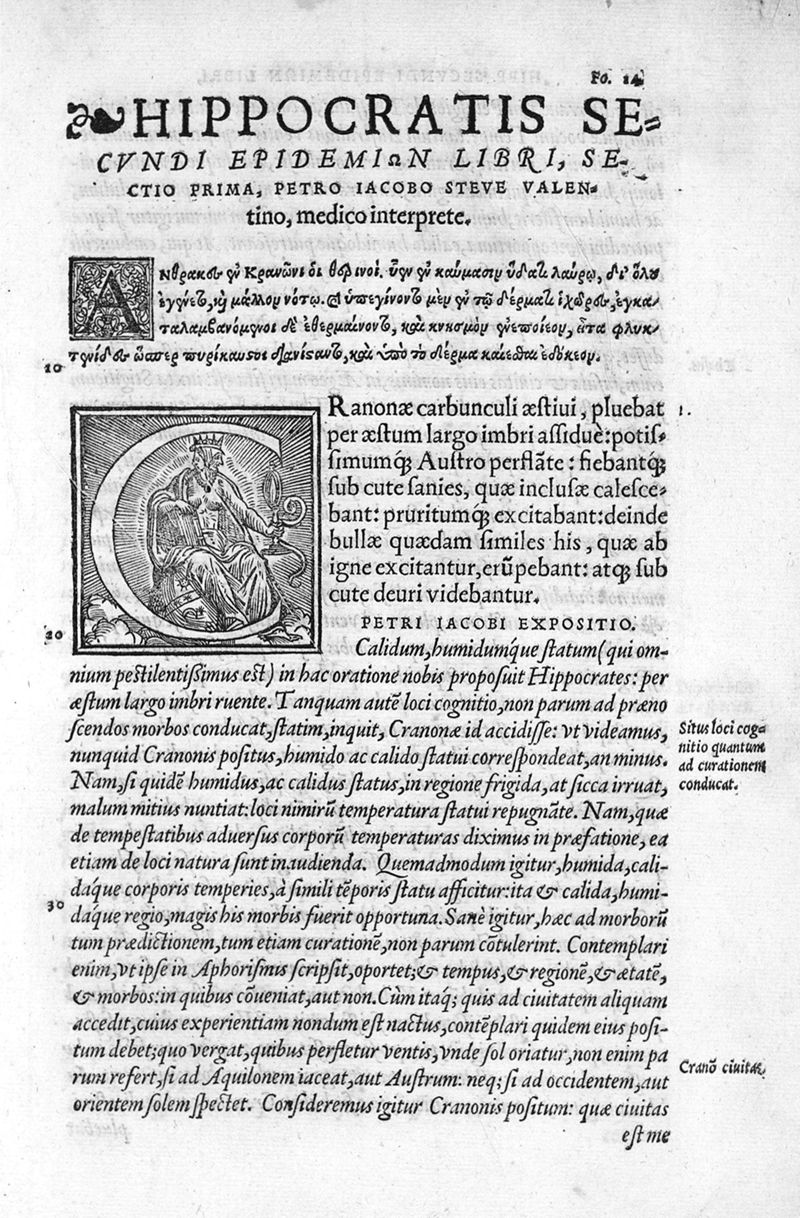 Fo. 14
HIPPOCRATIS SE-
CVNDI EPIDEMIΩN LIBRI, SE-
CTIO PRIMA, PETRO IACOBO STEVE VALEN-
tino, medico interprete.
Ἄνθρακες ἐν Κρανῶνι οἱ θερινοὶ. ὗεν ἐν καύμασιν ὕδατι λαύρῳ, δι' ὅλου
ἐγένετο, καὶ μᾶλλον νότῳ. καὶ ὑπεγίνοντο μὲν ἐν τῷ δέρματι ἰχῶρες, ἐγκα-
ταλαμβανόμενοι δὲ ἐθερμαίνοντο, καὶ κνησμὸν ἐνεποίεον, εἶτα φλυκ-
ταινίδες ὥσπερ πυρίκαυστοι ἐπανίσταντο, καὶ ὑπὸ τὸ δέρμα καίεσθαι ἐδόκεον.
10
CRanonæ carbunculi æstiui, pluebat 1.
per æstum largo imbri assiduè: potis-
simumq́; Austro perflãte: fiebantq́;
sub cute sanies, quæ inclusæ calesce-
bant: pruritumq́; excitabant: deinde
bullæ quædam similes his, quæ ab
igne excitantur, erũpebant: atq́; sub
cute deuri videbantur.
PETRI IACOBI EXPOSITIO.
20
Calidum, humidumq́ue statum (qui om-
nium pestilentissimus est) in hac oratione nobis proposuit Hippocrates: per
æstum largo imbri ruente. Tanquam autẽ loci cognitio, non parum ad præno
scendos morbos conducat, statim, inquit, Cranonæ id accidisse: vt videamus,
nunquid Cranonis positus, humido ac calido statui correspondeat, an minus.
Nam, si quidẽ humidus, ac calidus status, in regione frigida, at sicca irruat,
malum mitius nuntiat: loci nimirũ temperatura statui repugnãte. Nam, quæ
de tempestatibus aduersus corporũ temperaturas diximus in præfatione, ea
etiam de loci natura sunt inaudienda. Quemadmodum igitur, humida, cali-
daq́ue corporis temperies, à simili tẽporis statu afficitur: ita & calida, humi-
30
daq́ue regio, magis his morbis fuerit opportuna. Sanè igitur, hæc ad morborũ
tum prædictionem, tum etiam curationẽ, non parum cõtulerint. Contemplari
enim, vt ipse in Aphorismis scripsit, oportet; & tempus, & regionẽ, & ætatẽ,
& morbos: in quibus cõueniat, aut non. Cùm itaq; quis ad ciuitatem aliquam
accedit, cuius experientiam nondum est nactus, contẽplari quidem eius posi-
tum debet; quo vergat, quibus perfletur ventis, vnde sol oriatur, non enim pa
rum refert, si ad Aquilonem iaceat, aut Austrum: neq; si ad occidentem, aut
orientem solem spectet. Consideremus igitur Cranonis positum: quæ ciuitas
est me
Situs loci cog-
nitio quantum
ad curationem
conducat.
Cranõ ciuitas.